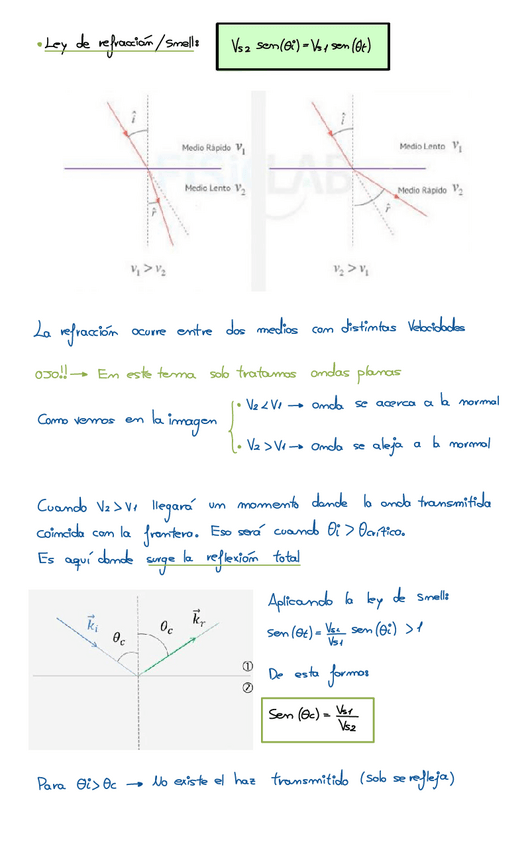 • Ley de refracción/Smell:
Vs2 sen(θi) = Vs1 sen(θt)
î
Medio Rápido v1
Medio Lento v2
r̂
v1 > v2
î
Medio Lento v1
Medio Rápido v2
r̂
v2 > v1
FISICLAB
La refracción ocurre entre dos medios con distintas Velocidades
OJO!! → En este tema solo tratamos ondas planas
Como vemos en la imagen
• V2 < V1 → onda se acerca a la normal
• V2 > V1 → onda se aleja a la normal
Cuando V2 > V1 llegará un momento donde la onda transmitida
coincida con la frontera. Eso será cuando θi > θcrítico.
Es aquí donde surge la reflexión total
k⃗i
θc
θc
k⃗r
①
②
Aplicando la ley de smell:
sen(θt) = Vs2/Vs1 sen(θi) > 1
De esta formas
Sen(θc) = Vs1/Vs2
Para θi > θc → No existe el haz transmitido (solo se refleja)